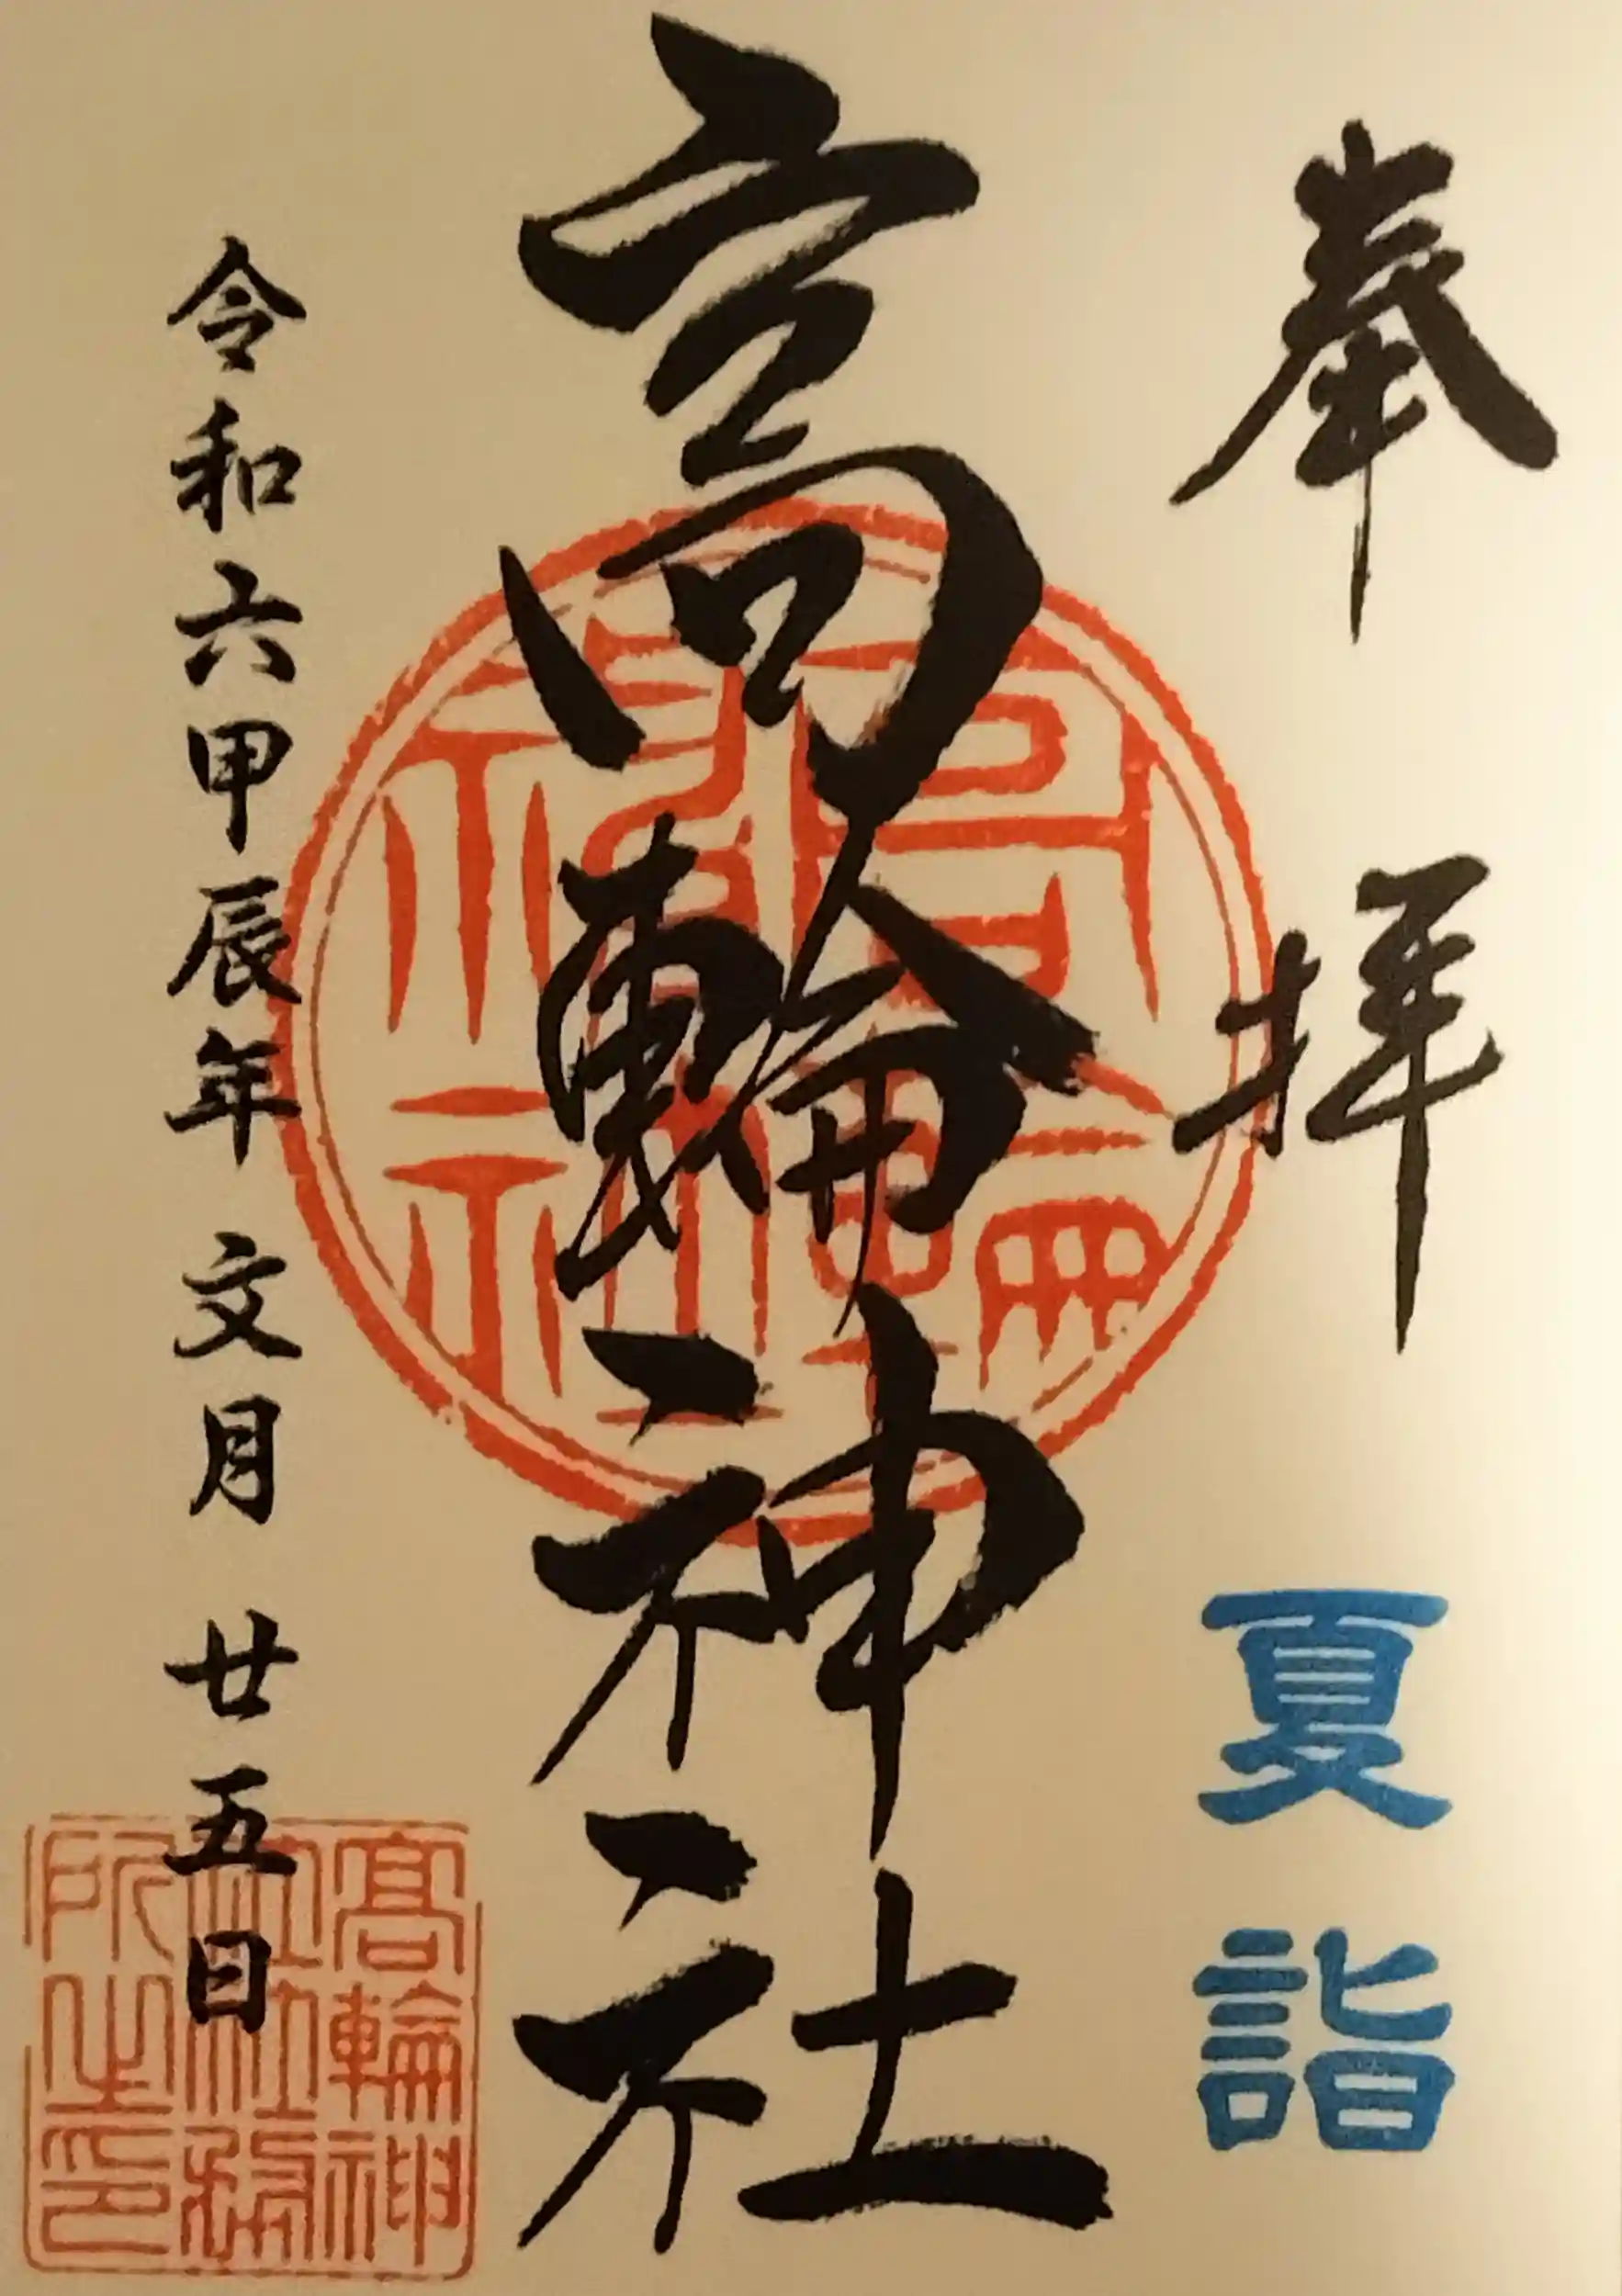 奉拝
夏詣
高輪神社
令和六甲辰年 文月 廿五日
高輪神
社社務
所之印